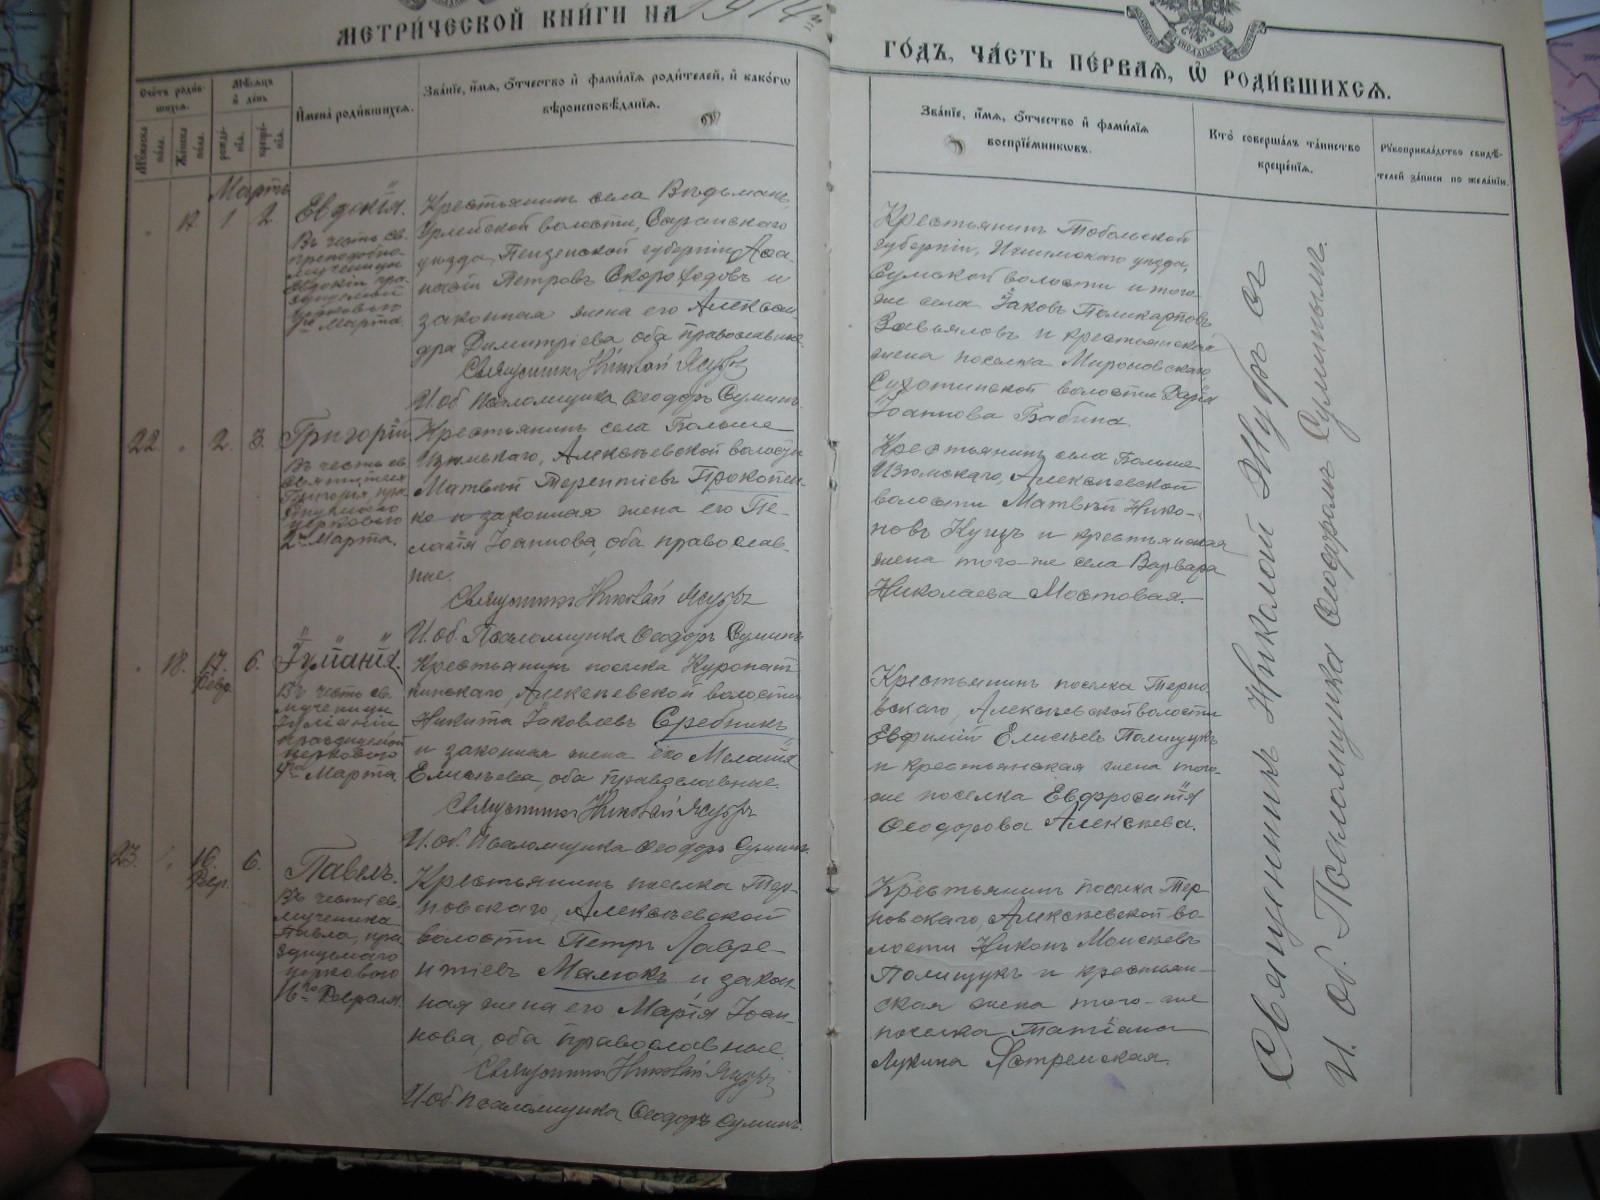 МЕТРИ́ЧЕСКОЙ КНИ́ГИ НА 1914й
ГО́ДЪ, ЧА́СТЬ ПЕ́РВАѦ, Ѡ҆ РОДИ́ВШИХСѦ.
Сче́тъ роди́в-
шихсѧ.
Мѣ́сѧцъ
и҆ де́нь
И҆мена̀ роди́вшихсѧ.
Зва́нїе, и҆́мѧ, ѻ҆́тчество и҆ фами́лїѧ роди́телей, и҆ како́гѡ
вѣроисповѣ́данїѧ.
Зва́нїе, и҆́мѧ, ѻ҆́тчество и҆ фами́лїѧ
воспрїе́мникѡвъ.
Кто̀ соверша́лъ та́инство
креще́нїѧ.
Рꙋкоприкла́дство свидѣ́-
телей за́писи по жела́нїю.
Мꙋ́жеска
по́ла.
Же́нска
по́ла.
рожде́-
нїѧ.
креще́-
нїѧ.
Мартъ
1. 2.
Евдокія.
Въ честь св.
преподобно-
мученицы
Евдокіи, пра-
зднуемой
церковью
1го Марта.
Крестьянинъ села
волости, Саранскаго
уѣзда, Пензенской губерніи, Аѳа-
насій Петровъ Скороходовъ и
законная жена его Алексан-
дра Димитріева, оба православные.
Священникъ Николай
И. об. Псаломщика Ѳеодоръ Сулимъ.
Крестьянинъ Тобольской
губерніи, Ишимскаго уѣзда,
Сумской волости и того-
же села Іаковъ Поликарповъ
Завьяловъ и крестьянская
жена поселка Мироновскаго
волости Дарія
Іоаннова Бабина.
22. " 2. 3.
Григорій
Въ честь св.
святителя
Григорія, пра-
зднуемаго
церковью
2го Марта.
Крестьянинъ села Больше
Изюмскаго, Алексѣевской волости
Матвѣй Терентіевъ Прокопен-
ко и законная жена его Пе-
лагія Іоаннова, оба православ-
ные.
Священникъ Николай
И. об. Псаломщика Ѳеодоръ Сулимъ
Крестьянинъ села Больше
Изюмскаго, Алексѣевской
волости Матвѣй Нико-
новъ Куцъ и крестьянская
жена того-же села Варвара
Николаева Мостовая.
" 18. 17. 6.
Февр.
Іуліанія.
Въ честь св.
мученицы
Іуліаніи
празднуемой
церковью
4го Марта.
Крестьянинъ поселка Куропат-
кинскаго, Алексѣевской волости
Никита Іаковлевъ Сребникъ
и законная жена его Меланія
Елисѣева, оба православные.
Священникъ Николай
И. об. Псаломщика Ѳеодоръ Сулимъ
Крестьянинъ поселка Терно-
вскаго, Алексѣевской волости
Евфимій Елисѣевъ Полищукъ
и крестьянская жена того-
же поселка Евфросинія
Ѳеодорова Алексѣева.
23. " 16. 6.
Февр.
Павелъ.
Въ честь св.
мученика
Павла, пра-
зднуемаго
церковью
16го Февраля.
Крестьянинъ поселка Тер-
новскаго, Алексѣевской
волости Петръ Лавре-
нтіевъ Малюкъ и закон-
ная жена его Марія Іоан-
нова, оба православные.
Священникъ Николай
И. об. Псаломщика Ѳеодоръ Сулимъ.
Крестьянинъ поселка Тер-
новскаго, Алексѣевской во-
лости Никонъ Моисѣевъ
Полищукъ и крестьян-
ская жена того-же
поселка Татіана
Лукина Ястремская.
Священникъ Николай съ
И. об. Псаломщика Ѳеодоромъ Сулимымъ.